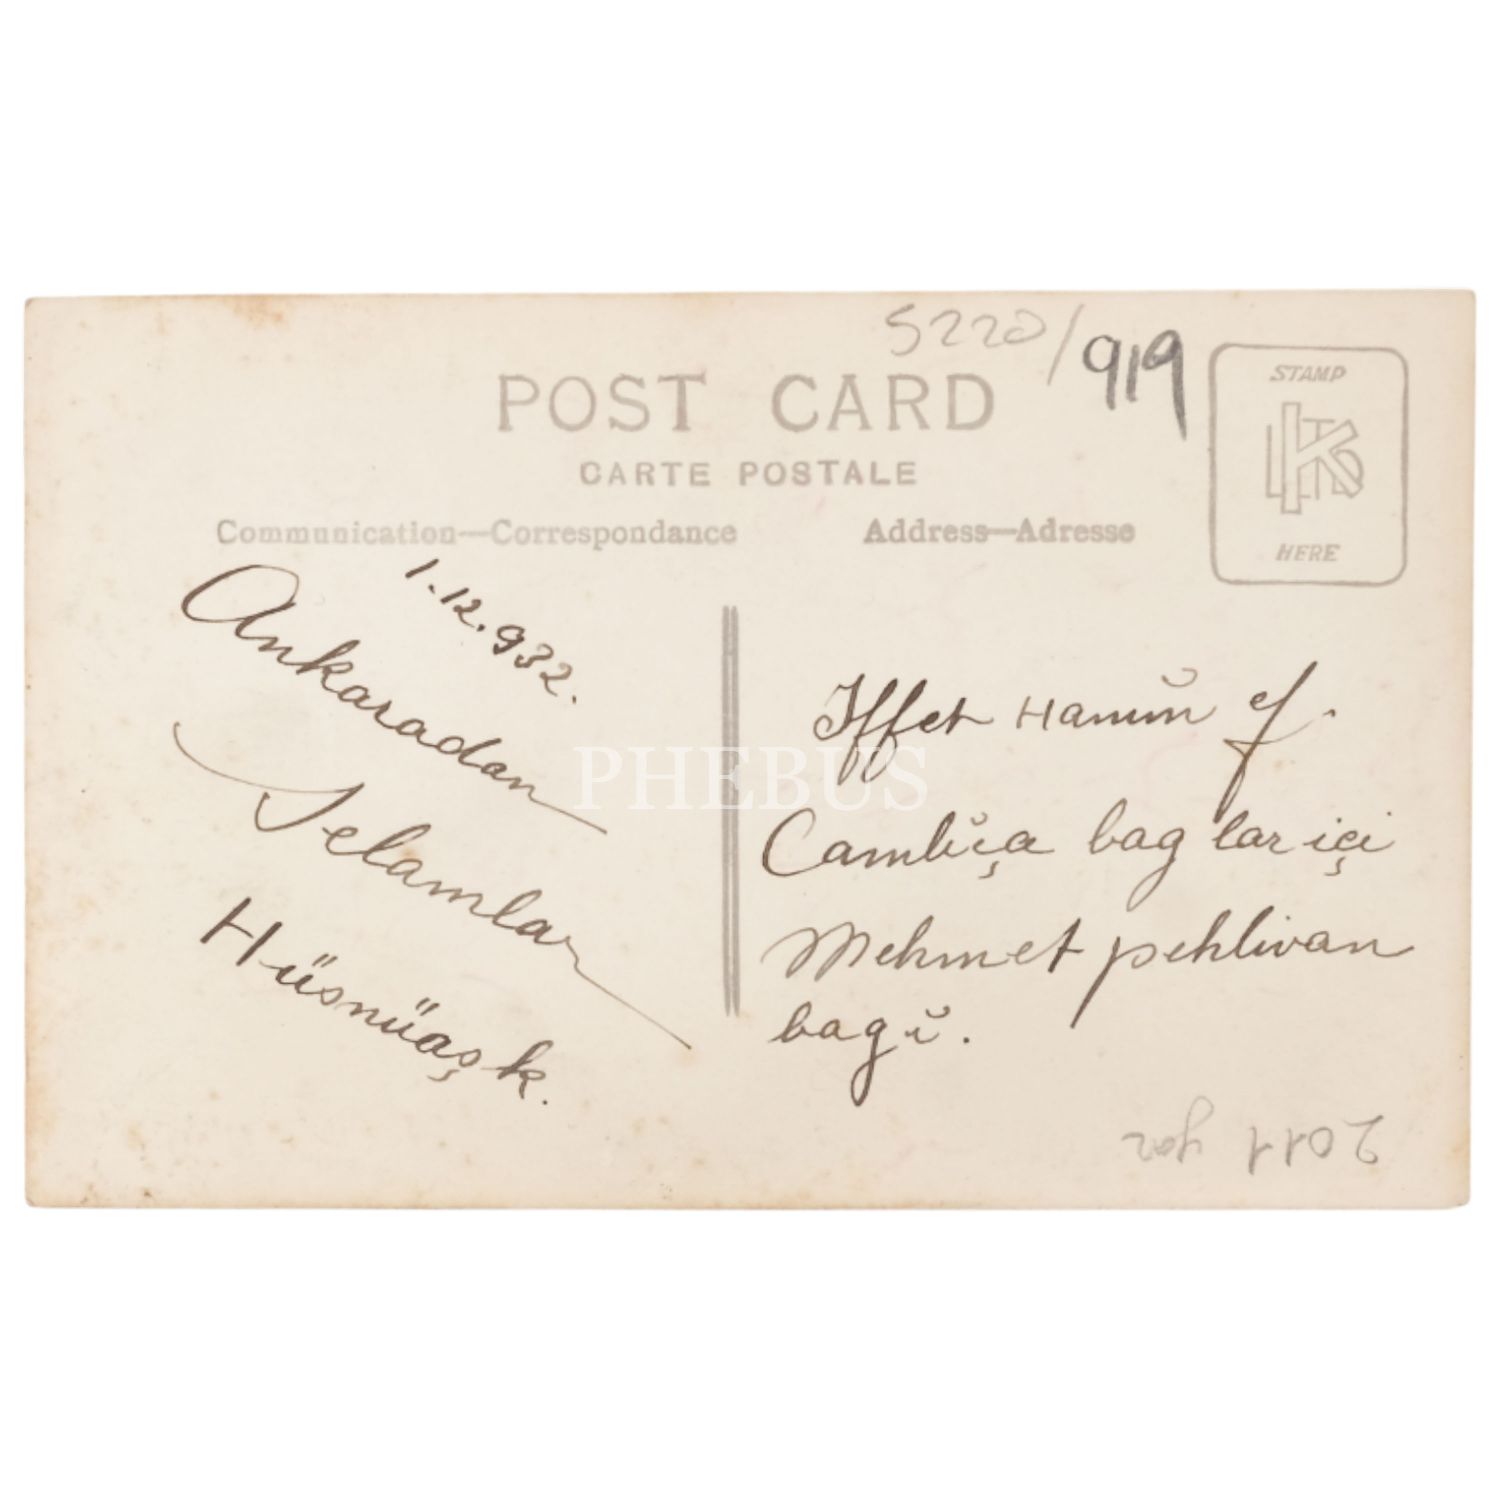 5220/919
POST CARD
CARTE POSTALE
Communication—Correspondance
Address—Adresse
STAMP
HERE
1.12.932.
Ankaradan
Selamlar
Hüsnüaşk.
Iffet Hanım ef.
Camlıça baglar içi
Mehmet pehlivan
bagı.
PHEBUS
2011 yaz